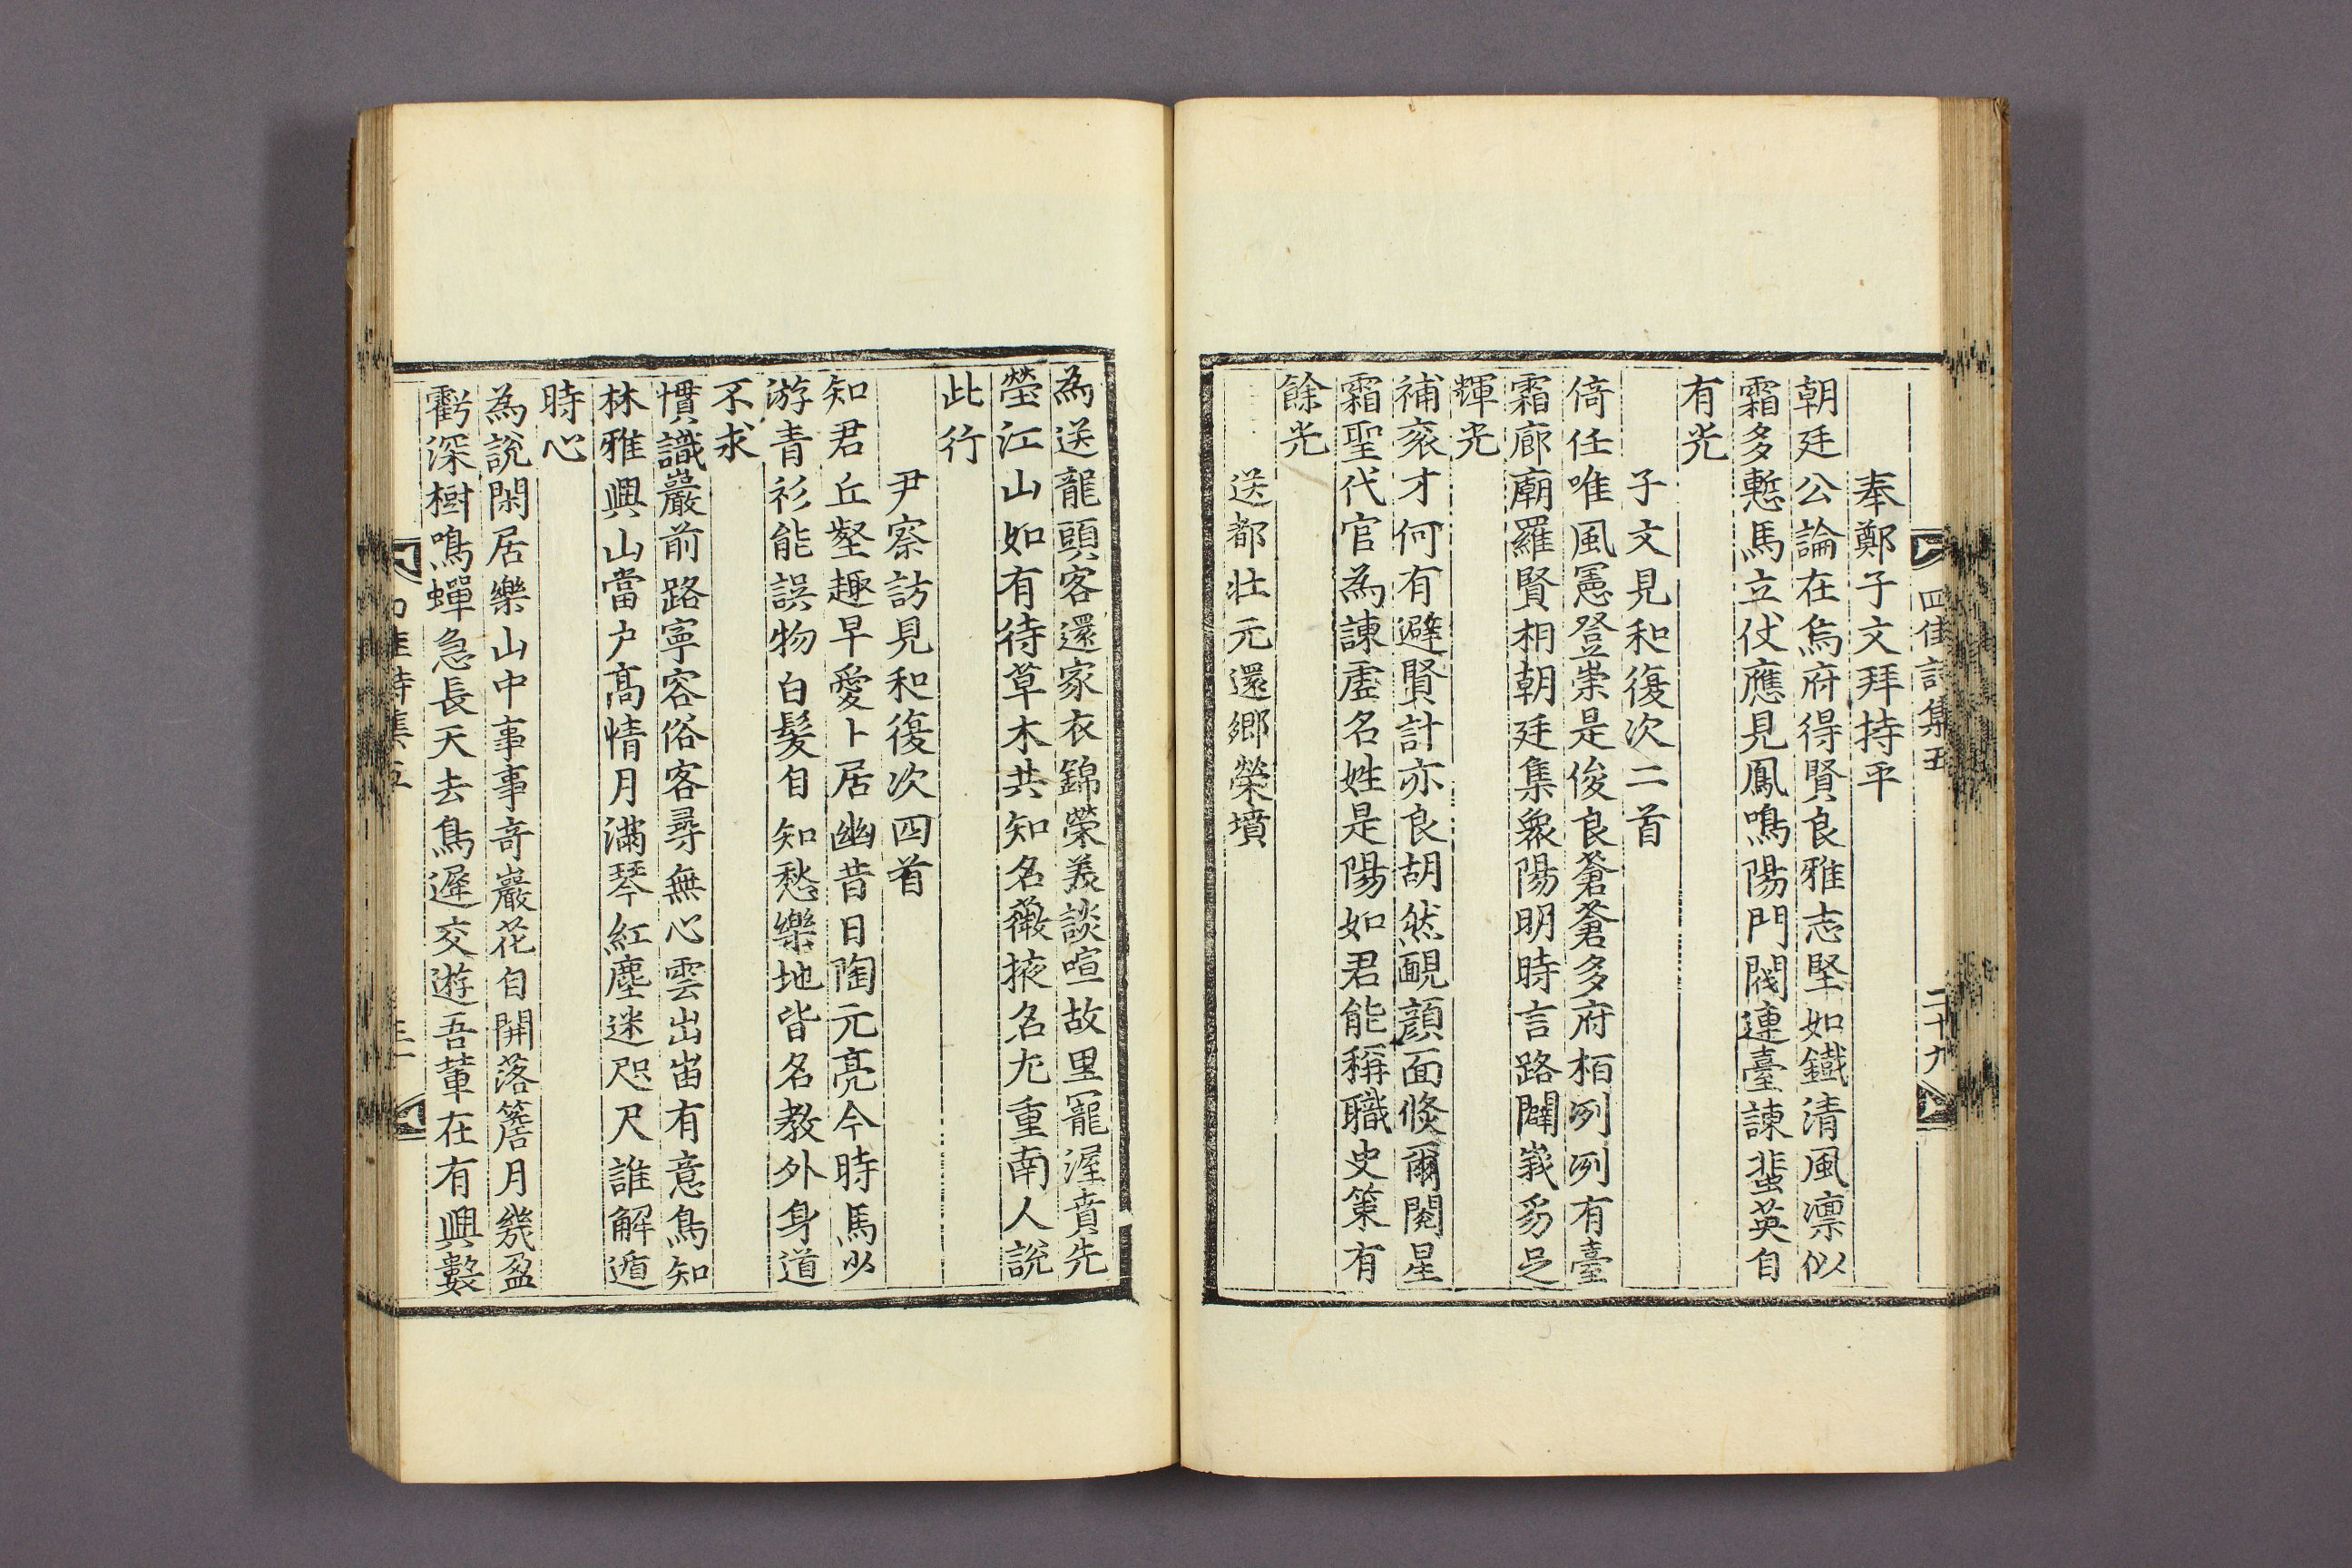 四佳詩集五 二十九
奉鄭子文拜持平
朝廷公論在烏府得賢良雅志堅如鐵清風凛似
霜多慙馬立仗應見鳳鳴陽門閥連臺諫蜚英自
有光
子文見和復次二首
倚任唯風憲登崇是俊良蒼蒼多府栢冽冽有臺
霜廊廟羅賢相朝廷集衆陽明時言路闢峩豸足
輝光
補衮才何有避賢計亦良胡然靦顔面倐爾閱星
霜聖代官為諫虛名姓是陽如君能稱職史策有
餘光
送都壯元還鄕榮墳
為送龍頭客還家衣錦榮義談喧故里寵渥賁先
塋江山如有待草木共知名薇掖名尤重南人說
此行
尹察訪見和復次四首
知君丘壑趣早愛卜居幽昔日陶元亮今時馬少
游青衫能誤物白髮自知愁樂地皆名敎外身道
不求
慣識巖前路寜容俗客尋無心雲出峀有意鳥知
林雅興山當户髙情月滿琴紅塵迷咫尺誰解遁
時心
為說閑居樂山中事事奇巖花自開落簷月幾盈
虧深樹鳴蟬急長天去鳥遲交遊吾軰在有興數
詩集五